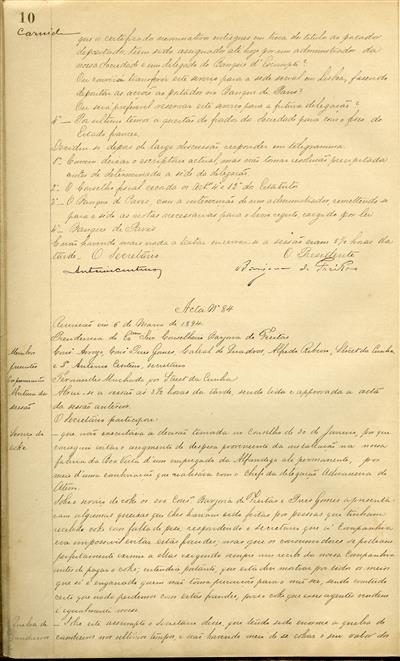 10
Carnide
que o certificado nominativo entregue em troca do titulo ao portador
depositado, tem sido assignado até hoje por um administrador da
nossa Sociedade e um delegado do Banque d'Escompte?
Ou convirá transferir este serviço para a séde social em Lisboa, fazendo
depositar as acções ao portador no Banque de Paris?
Ou será preferivel reservar este serviço para a futura delegação?
4º - Por ultimo temos a questão do fiador da Sociedade para com o fisco do
Estado francez.
Decidiu-se depois de larga discussão, responder em telegramma:
1º Convem deixar o escriptorio actual, mas não tomar resolução precipitada
antes de determinada a séde da delegação.
2º - O Conselho fiscal creado no Art. 4º e 12º do Estatuto
3º - O Banque de Paris, com a intervenção de um administrador, remettendo-se
para a séde as notas necessarias para o livro registo exigido por lei
4º - Banque de Paris
E não havendo mais nada a tratar encerrou-se a sessão eram 5½ horas da
tarde. - O Secretario O Presidente
Antonio Centeno Barjona de Freitas
Acta Nº 84
Reunião em 6 de Março de 1894.
Presidencia do Exmo Snr Conselheiro Barjona de Freitas
Membros
presentes
Consos Arroyo, Consº Pires Gomes, Cabral de Quadros, Alfredo Ribeiro, Street da Cunha
e Sr Antonio Centeno, secretario
Fernandes Machado por Street da Cunha
Abertura da
sessão
Abriu-se a sessão ás 3½ horas da tarde, sendo lida e approvada a acta
da sessão anterior.
O Secretario participou:
Serviço de
coke
- que não executára a decisão tomada no Conselho de 30 de Janeiro, por que
conseguiu evitar o augmento de despeza proveniente da installação na nossa
fabrica da Boa Vista d'um empregado da Alfandega ali permanente, por
meio d'uma combinação que realisára com o Chefe da delegação Aduaneira do
Aterro.
Sobre o serviço de coke os Snrs Consos Barjona de Freitas e Pires Gomes apresenta-
ram algumas queixas que lhes haviam sido feitas por pessoas que tinham
recebido coke com falta de peso, respondendo o secretario que á Companhia
era impossivel evitar estas fraudes, mas que os consumidores se podiam
perfeitamente eximir a ellas exigindo sempre um recibo da nossa Companhia
antes de pagar o coke; entendia portanto, que esta deu motivo por todos os meios
que só é enganado quem não toma precaução para o não ser, sendo comtudo
certo que nada perdemos com estas fraudes, pois o coke que esses agentes vendem
é egualmente nosso.
Quebra de
candieiros
- Sobre este assumpto o secretario disse, que tendo sido enorme a quebra de
candieiros nos ultimos tempos, e não havendo meio de se cobrar o seu valor dos